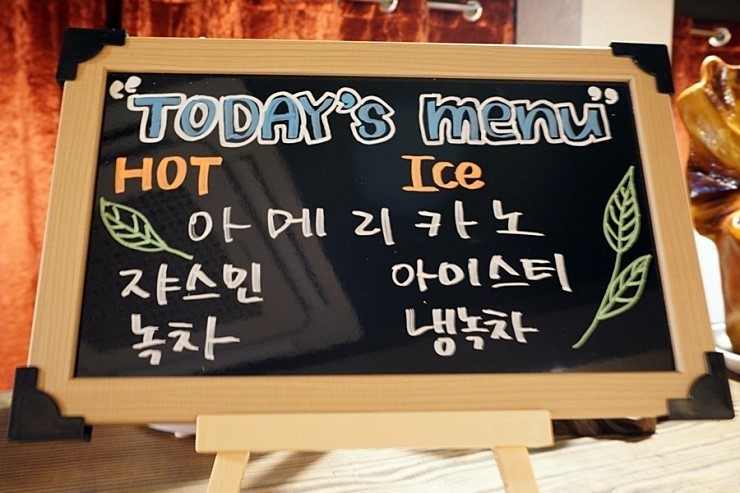 "TODAY's menu"
HOT Ice
아메리카노
쟈스민 아이스티
녹차 냉녹차